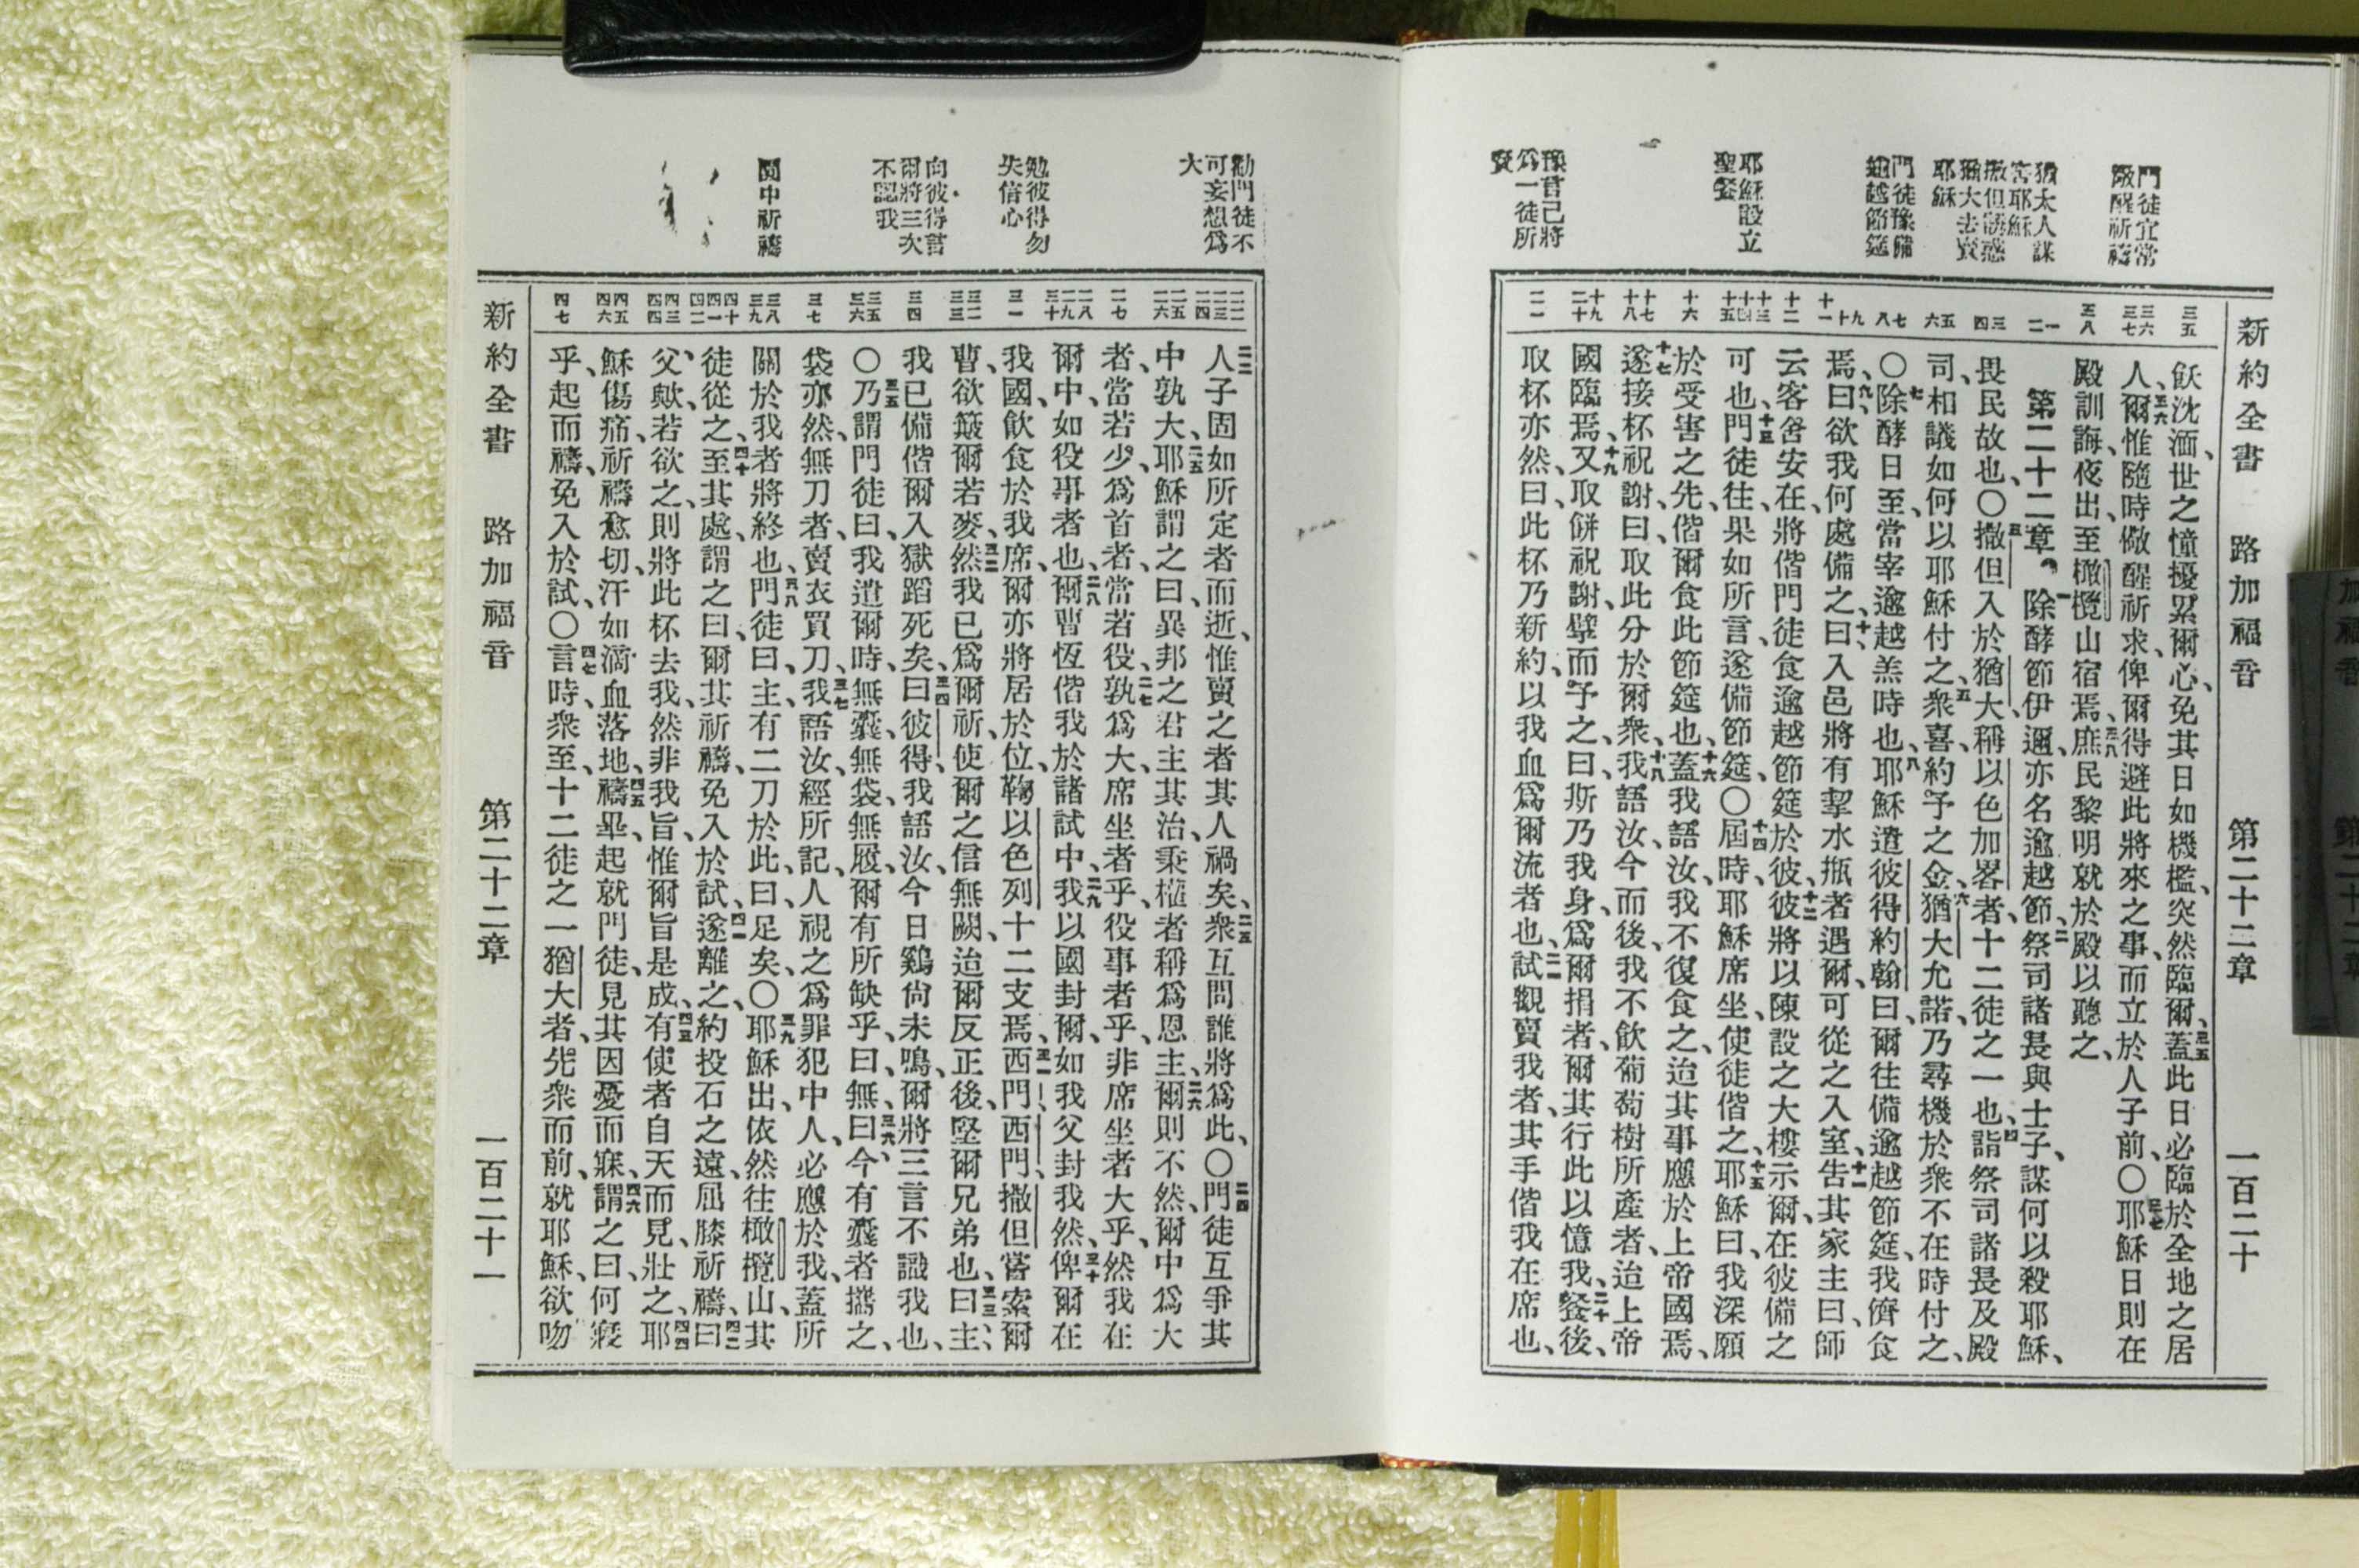 新約全書　路加福音　第二十二章　一百二十
門徒宜常
儆醒祈禱
猶太人謀
害耶穌
撒但誘惑
猶大去賣
耶穌
門徒豫備
逾越節筵
耶穌設立
聖餐
豫言己將
爲一徒所
賣
三五
三六
三七
三八
一
二
三
四
五
六
七
八
九
十
十一
十二
十三
十四
十五
十六
十七
十八
十九
二十
二一
飫沈湎、世之憧擾、累爾心、免其日如機檻、突然臨爾、三五蓋此日必臨於全地之居
人、三六爾惟隨時儆醒祈求、俾爾得避此將來之事、而立於人子前、〇三七耶穌日則在
殿訓誨、夜出、至橄欖山宿焉、三八庶民黎明就於殿以聽之、
第二十二章。一除酵節伊邇、亦名逾越節、二祭司諸長與士子、謀何以殺耶穌、
畏民故也、〇三撒但入於猶大、稱以色加畧者、十二徒之一也、四詣祭司諸長及殿
司、相議如何以耶穌付之、五衆喜、約予之金、六猶大允諾、乃尋機於衆不在時付之、
〇七除酵日至、當宰逾越羔時也、八耶穌遣彼得約翰曰、爾往備逾越節筵、我儕食
焉、九曰、欲我何處備之、十曰、入邑將有挈水瓶者遇爾、可從之入室、十一告其家主曰、師
云、客舍安在、將偕門徒食逾越節筵於彼、十二彼將以陳設之大樓示爾、在彼備之
可也、十三門徒往、果如所言、遂備節筵、〇十四屆時、耶穌席坐、使徒偕之、十五耶穌曰、我深願
於受害之先、偕爾食此節筵也、十六蓋我語汝、我不復食之、迨其事應於上帝國焉、
十七遂接杯祝謝、曰、取此分於爾衆、十八我語汝、今而後、我不飲葡萄樹所產者、迨上帝
國臨焉、十九又取餅祝謝、擘而予之、曰、斯乃我身、爲爾捐者、爾其行此以憶我、二十餐後、
取杯亦然、曰、此杯乃新約、以我血爲爾流者也、二一試觀賣我者、其手偕我在席也、
勸門徒不
可妄想爲
大
勉彼得勿
失信心
向彼得言
爾將三次
不認我
園中祈禱
二二
二三
二四
二五
二六
二七
二八
二九
三十
三一
三二
三三
三四
三五
三六
三七
三八
三九
四十
四一
四二
四三
四四
四五
四六
四七
二二人子固如所定者而逝、惟賣之者其人禍矣、二三衆互問誰將爲此、〇二四門徒互爭其
中孰大、二五耶穌謂之曰、異邦之君主其治、秉權者稱爲恩主、二六爾則不然、爾中爲大
者、當若少、爲首者、當若役、二七孰爲大、席坐者乎、役事者乎、非席坐者大乎、然我在
爾中、如役事者也、二八爾曹恆偕我於諸試中、二九我以國封爾、如我父封我然、三十俾爾在
我國、飲食於我席、爾亦將居於位、鞫以色列十二支焉、三一西門、西門、撒但嘗索爾
曹、欲簸爾若麥、三二然我已爲爾祈、使爾之信無闕、迨爾反正後、堅爾兄弟也、三三曰、主、
我已備偕爾入獄蹈死矣、三四曰、彼得、我語汝、今日鷄尙未鳴、爾將三言不識我也、
〇三五乃謂門徒曰、我遣爾時、無囊、無袋、無履、爾有所缺乎、曰、無、三六曰、今有囊者攜之、
袋亦然、無刀者、賣衣買刀、三七我語汝、經所記、人視之爲罪犯中人、必應於我、蓋所
關於我者將終也、三八門徒曰、主、有二刀於此、曰、足矣、〇三九耶穌出、依然往橄欖山、其
徒從之、四十至其處、謂之曰、爾其祈禱、免入於試、四一遂離之、約投石之遠、屈膝祈禱、四二曰、
父歟、若欲之、則將此杯去我、然非我旨、惟爾旨是成、四三有使者自天而見、壯之、四四耶
穌傷痛、祈禱愈切、汗如滴血落地、四五禱畢、起就門徒、見其因憂而寐、四六謂之曰、何寢
乎、起而禱、免入於試、〇四七言時、衆至、十二徒之一猶大者、先衆而前、就耶穌、欲吻
新約全書　路加福音　第二十二章　一百二十一